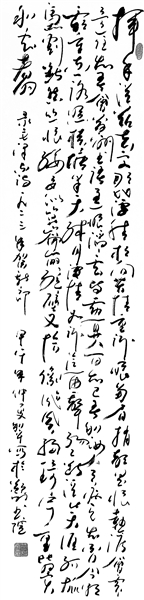 挥手从兹去更那堪凄然相向苦情重诉眼角眉梢都似恨热泪欲零还
住知误会前番书语过眼滔滔云共雾算人间知己吾和汝人有病天知否今朝霜
重东门路照横塘半天残月凄清如许汽笛一声肠已断从此天涯孤旅
凭割断愁丝恨缕要似昆仑崩绝壁又恰像台风扫寰宇重比翼
和云翥
录毛泽东词一九二三年贺新郎 甲午年仲夏